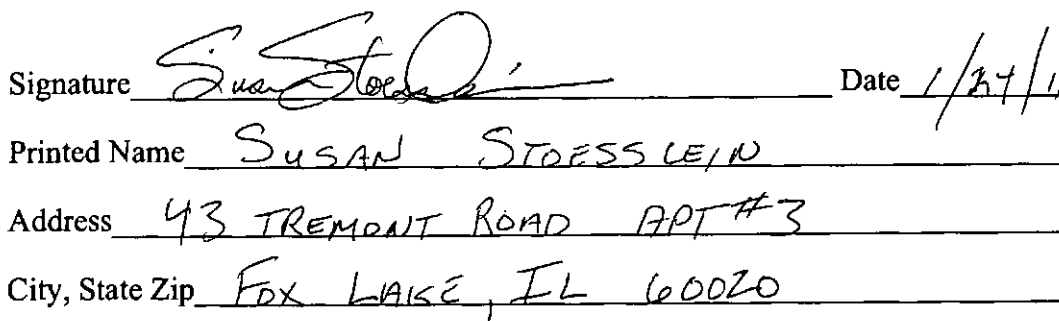 Signature Susan Stoesslein Date 1/27/1
Printed Name SUSAN STOESSLEIN
Address 43 TREMONT ROAD APT #3
City, State Zip FOX LAKE, IL 60020